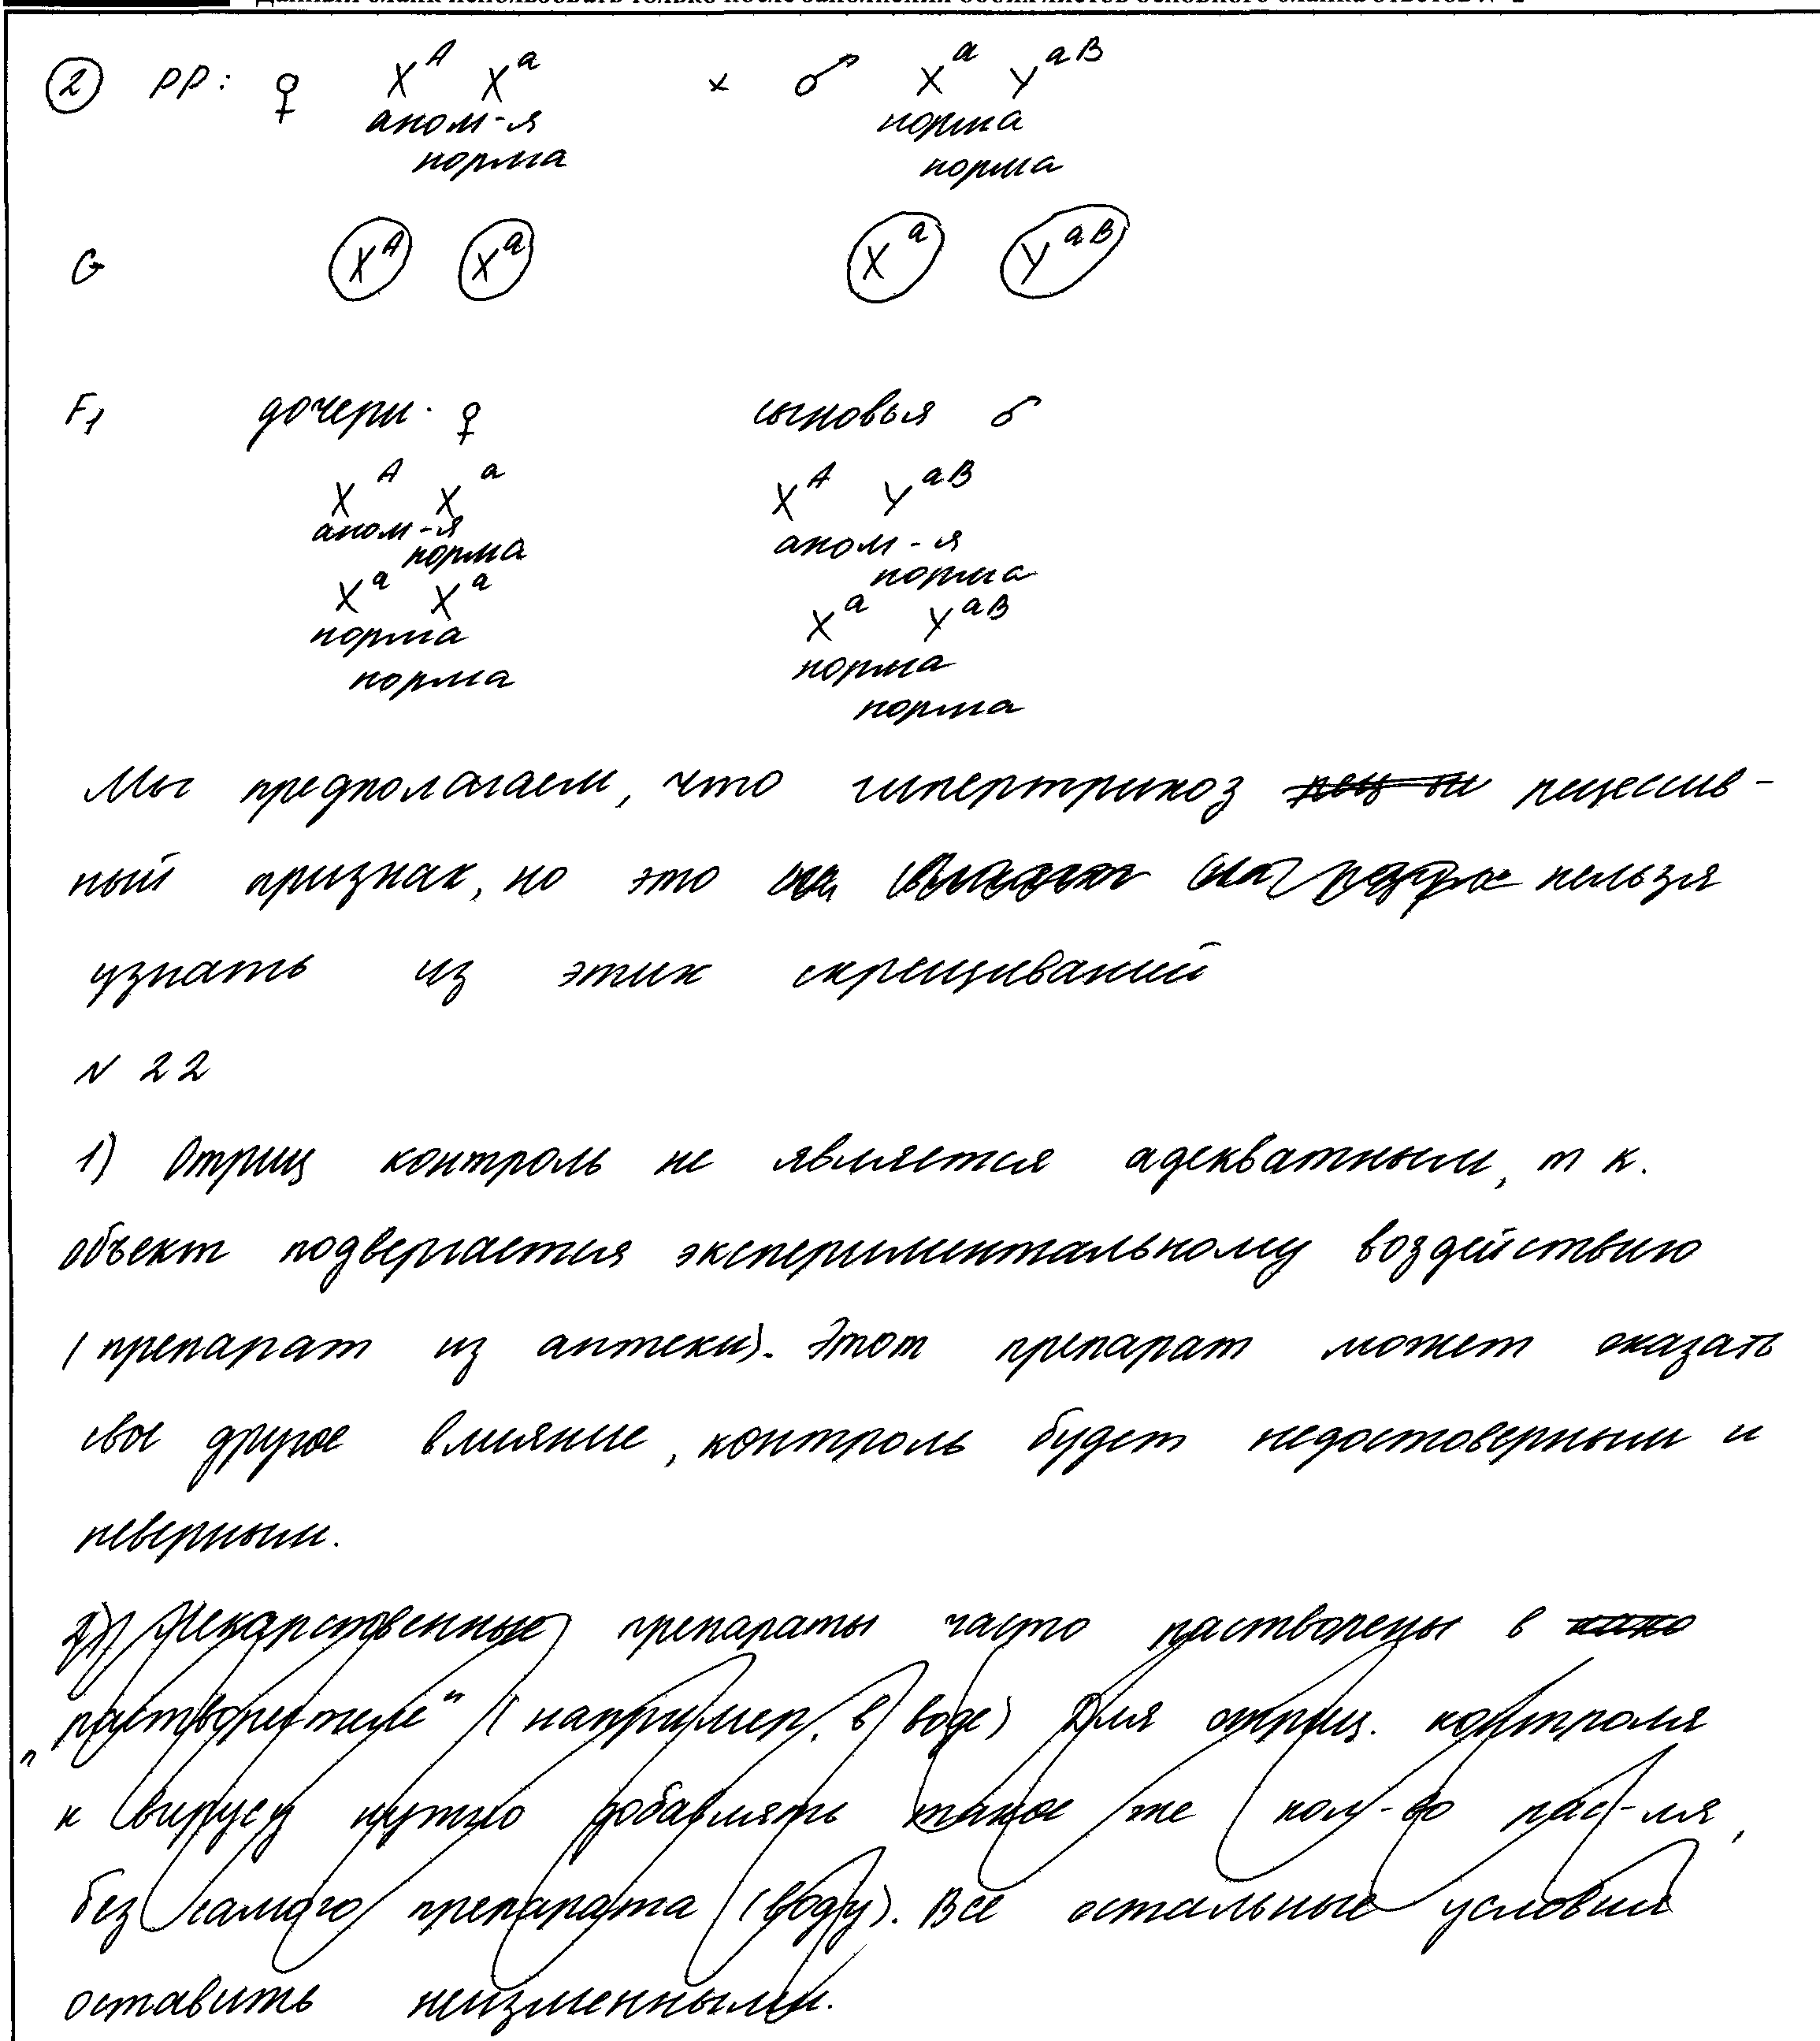 ② РР: ♀ X^A X^a × ♂ X^a Y^aB
аном-я норма
норма норма
G X^A X^a X^a Y^aB
F1 дочери ♀ сыновья ♂
X^A X^a X^A Y^aB
аном-я аном-я
норма норма
X^a X^a X^a Y^aB
норма норма
норма норма
Мы предполагаем, что гипертрихоз рецессив-
ный признак, но это нельзя
узнать из этих скрещиваний
N 22
1) Отриц контроль не является адекватным, т к.
объект подвергается экспериментальному воздействию
(препарат из аптеки). Этот препарат может оказать
свое другое влияние, контроль будет недостоверным и
неверным.
2) Лекарственные препараты часто растворены в
"растворителе" (например, в воде) Для отриц. контроля
к вирусу нужно добавлять такое же кол-во рас-ля,
без самого препарата (воду). Все остальные условия
оставить неизменными.